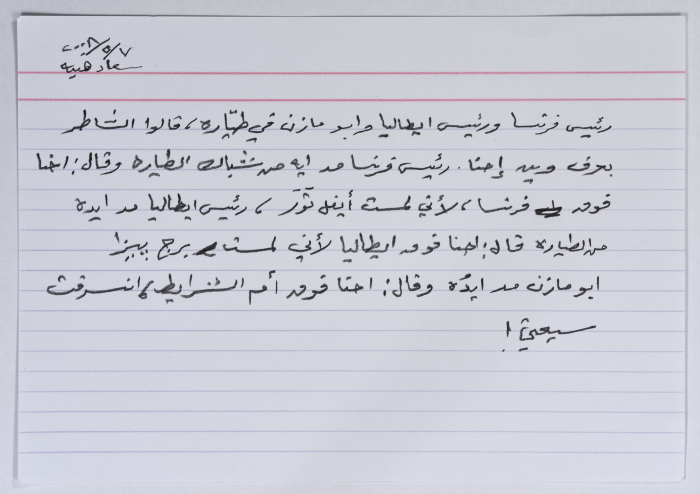 ٢٠٠٨/٥/٧
سعاد هنيه
رئيس فرنسا ورئيس ايطاليا وابو مازن في طيّاره، قالوا الشاطر
بعرف وين إحنا. رئيس فرنسا مد ايه من شباك الطياره وقال: احنا
فوق فرنسا، لأني لمست أيفل تَوَرْ، رئيس ايطاليا مد ايده
من الطياره قال: احنا فوق ايطاليا لأني لمست برج بيزا
ابو مازن مد ايدُه وقال: احنا فوق أم الشرايط، انسرقت
سيعتي!